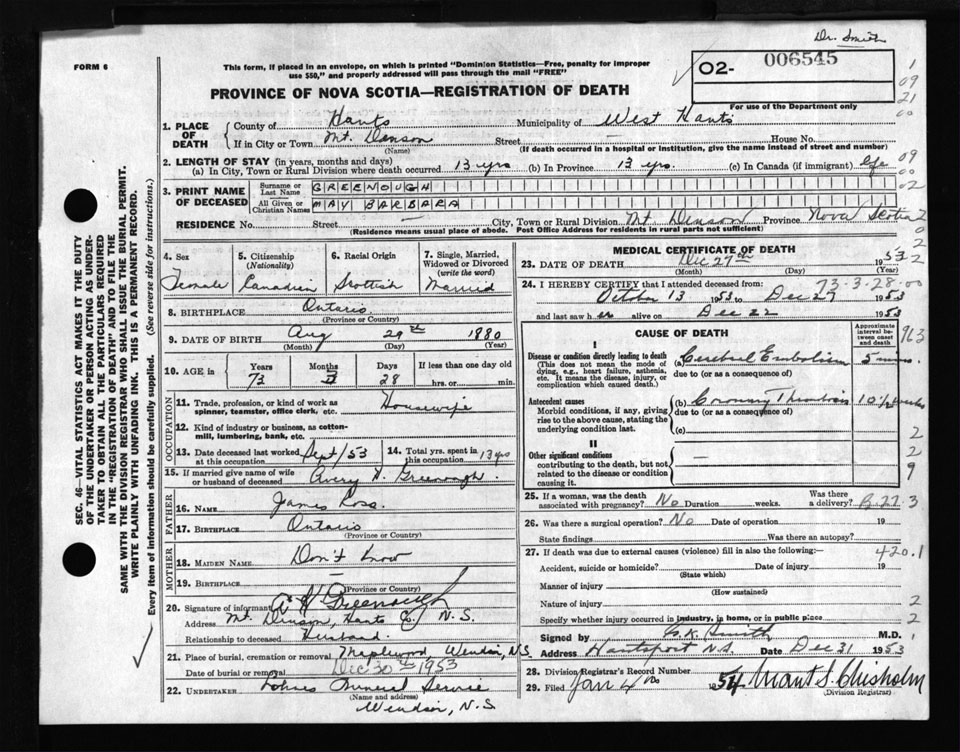 Dr. Smith
FORM 6
This form, if placed in an envelope, on which is printed "Dominion Statistics—Free, penalty for improper
use $50," and properly addressed will pass through the mail "FREE"
02- 006545
For use of the Department only
PROVINCE OF NOVA SCOTIA—REGISTRATION OF DEATH
1. PLACE OF DEATH
County of Hants Municipality of West Hants
If in City or Town Mt. Denson Street — House No.
(Name) (If death occurred in a hospital or institution, give the name instead of street and number)
2. LENGTH OF STAY (in years, months and days)
(a) In City, Town or Rural Division where death occurred 13 yrs (b) In Province 13 yrs. (c) In Canada (if immigrant) Life
3. PRINT NAME OF DECEASED
Surname or Last Name GREENOUGH
All Given or Christian Names MAY BARBARA
RESIDENCE No. Street — City, Town or Rural Division Mt. Denson Province Nova Scotia
(Residence means usual place of abode. Post Office Address for residents in rural parts not sufficient)
4. Sex Female
5. Citizenship (Nationality) Canadian
6. Racial Origin Scottish
7. Single, Married, Widowed or Divorced (write the word) Married
8. BIRTHPLACE Ontario
(Province or Country)
9. DATE OF BIRTH Aug 29th 1880
(Month) (Day) (Year)
10. AGE in Years 73 Months 3 Days 28 If less than one day old hrs. or min.
OCCUPATION
11. Trade, profession, or kind of work as spinner, teamster, office clerk, etc. Housewife
12. Kind of industry or business, as cotton-mill, lumbering, bank, etc.
13. Date deceased last worked at this occupation Sept/53
14. Total yrs. spent in this occupation 13 yrs
15. If married give name of wife or husband of deceased Avery H Greenough.
FATHER
16. Name James Ross.
17. Birthplace Ontario
(Province or Country)
MOTHER
18. Maiden Name Don't know
19. Birthplace —
(Province or Country)
20. Signature of informant A H Greenough
Address Mt. Denson, Hants Co. N.S.
Relationship to deceased Husband.
21. Place of burial, cremation or removal Maplewood, Windsor, N.S.
Date of burial or removal Dec 30th 1953
22. UNDERTAKER Funeral Service
(Name and address)
Windsor, N.S
MEDICAL CERTIFICATE OF DEATH
23. DATE OF DEATH Dec 27th 1953
(Month) (Day) (Year)
73-3-28-00
24. I HEREBY CERTIFY that I attended deceased from:
October 13 1953 to Dec 27 1953
and last saw her alive on Dec 22 1953
CAUSE OF DEATH
Approximate interval between onset and death
I
Disease or condition directly leading to death (This does not mean the mode of dying, e.g., heart failure, asthenia, etc. It means the disease, injury, or complication which caused death.)
(a) Cerebral Embolism 5 mins.
due to (or as a consequence of)
Antecedent causes
Morbid conditions, if any, giving rise to the above cause, stating the underlying condition last.
(b) Coronary Thrombosis 10½ weeks
due to (or as a consequence of)
(c)
II
Other significant conditions contributing to the death, but not related to the disease or condition causing it. —
25. If a woman, was the death associated with pregnancy? No Duration weeks. Was there a delivery?
26. Was there a surgical operation? No Date of operation 19
State findings Was there an autopsy?
27. If death was due to external causes (violence) fill in also the following:— 420.1
Accident, suicide or homicide? Date of injury 19
(State which)
Manner of injury
(How sustained)
Nature of injury
Specify whether injury occurred in industry, in home, or in public place
Signed by Smith M.D.
Address Hantsport N.S. Date Dec 31 1953
28. Division Registrar's Record Number
29. Filed Jan 4th 1954 Chisholm
(Division Registrar)
SEC. 46—VITAL STATISTICS ACT MAKES IT THE DUTY
OF THE UNDERTAKER OR PERSON ACTING AS UNDER-
TAKER TO OBTAIN ALL THE PARTICULARS REQUIRED
IN THE "REGISTRATION OF DEATH" AND TO FILE THE
SAME WITH THE DIVISION REGISTRAR WHO SHALL ISSUE THE BURIAL PERMIT.
WRITE PLAINLY WITH UNFADING INK. THIS IS A PERMANENT RECORD.
Every item of information should be carefully supplied. (See reverse side for instructions.)